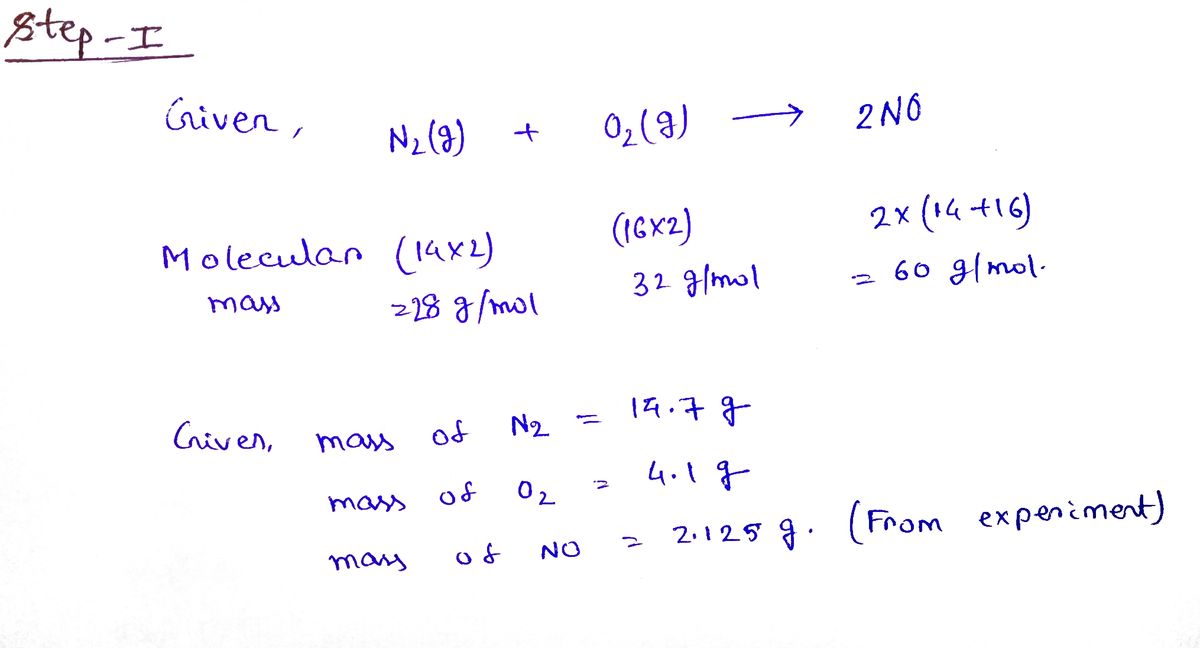 Step-I
Given, N₂(g) + O₂(g) → 2NO
Molecular mass (14×2) =28 g/mol (16×2) 32 g/mol 2×(14+16) = 60 g/mol.
Given, mass of N₂ = 14.7 g
mass of O₂ = 4.1 g
mass of NO = 2.125 g. (From experiment)